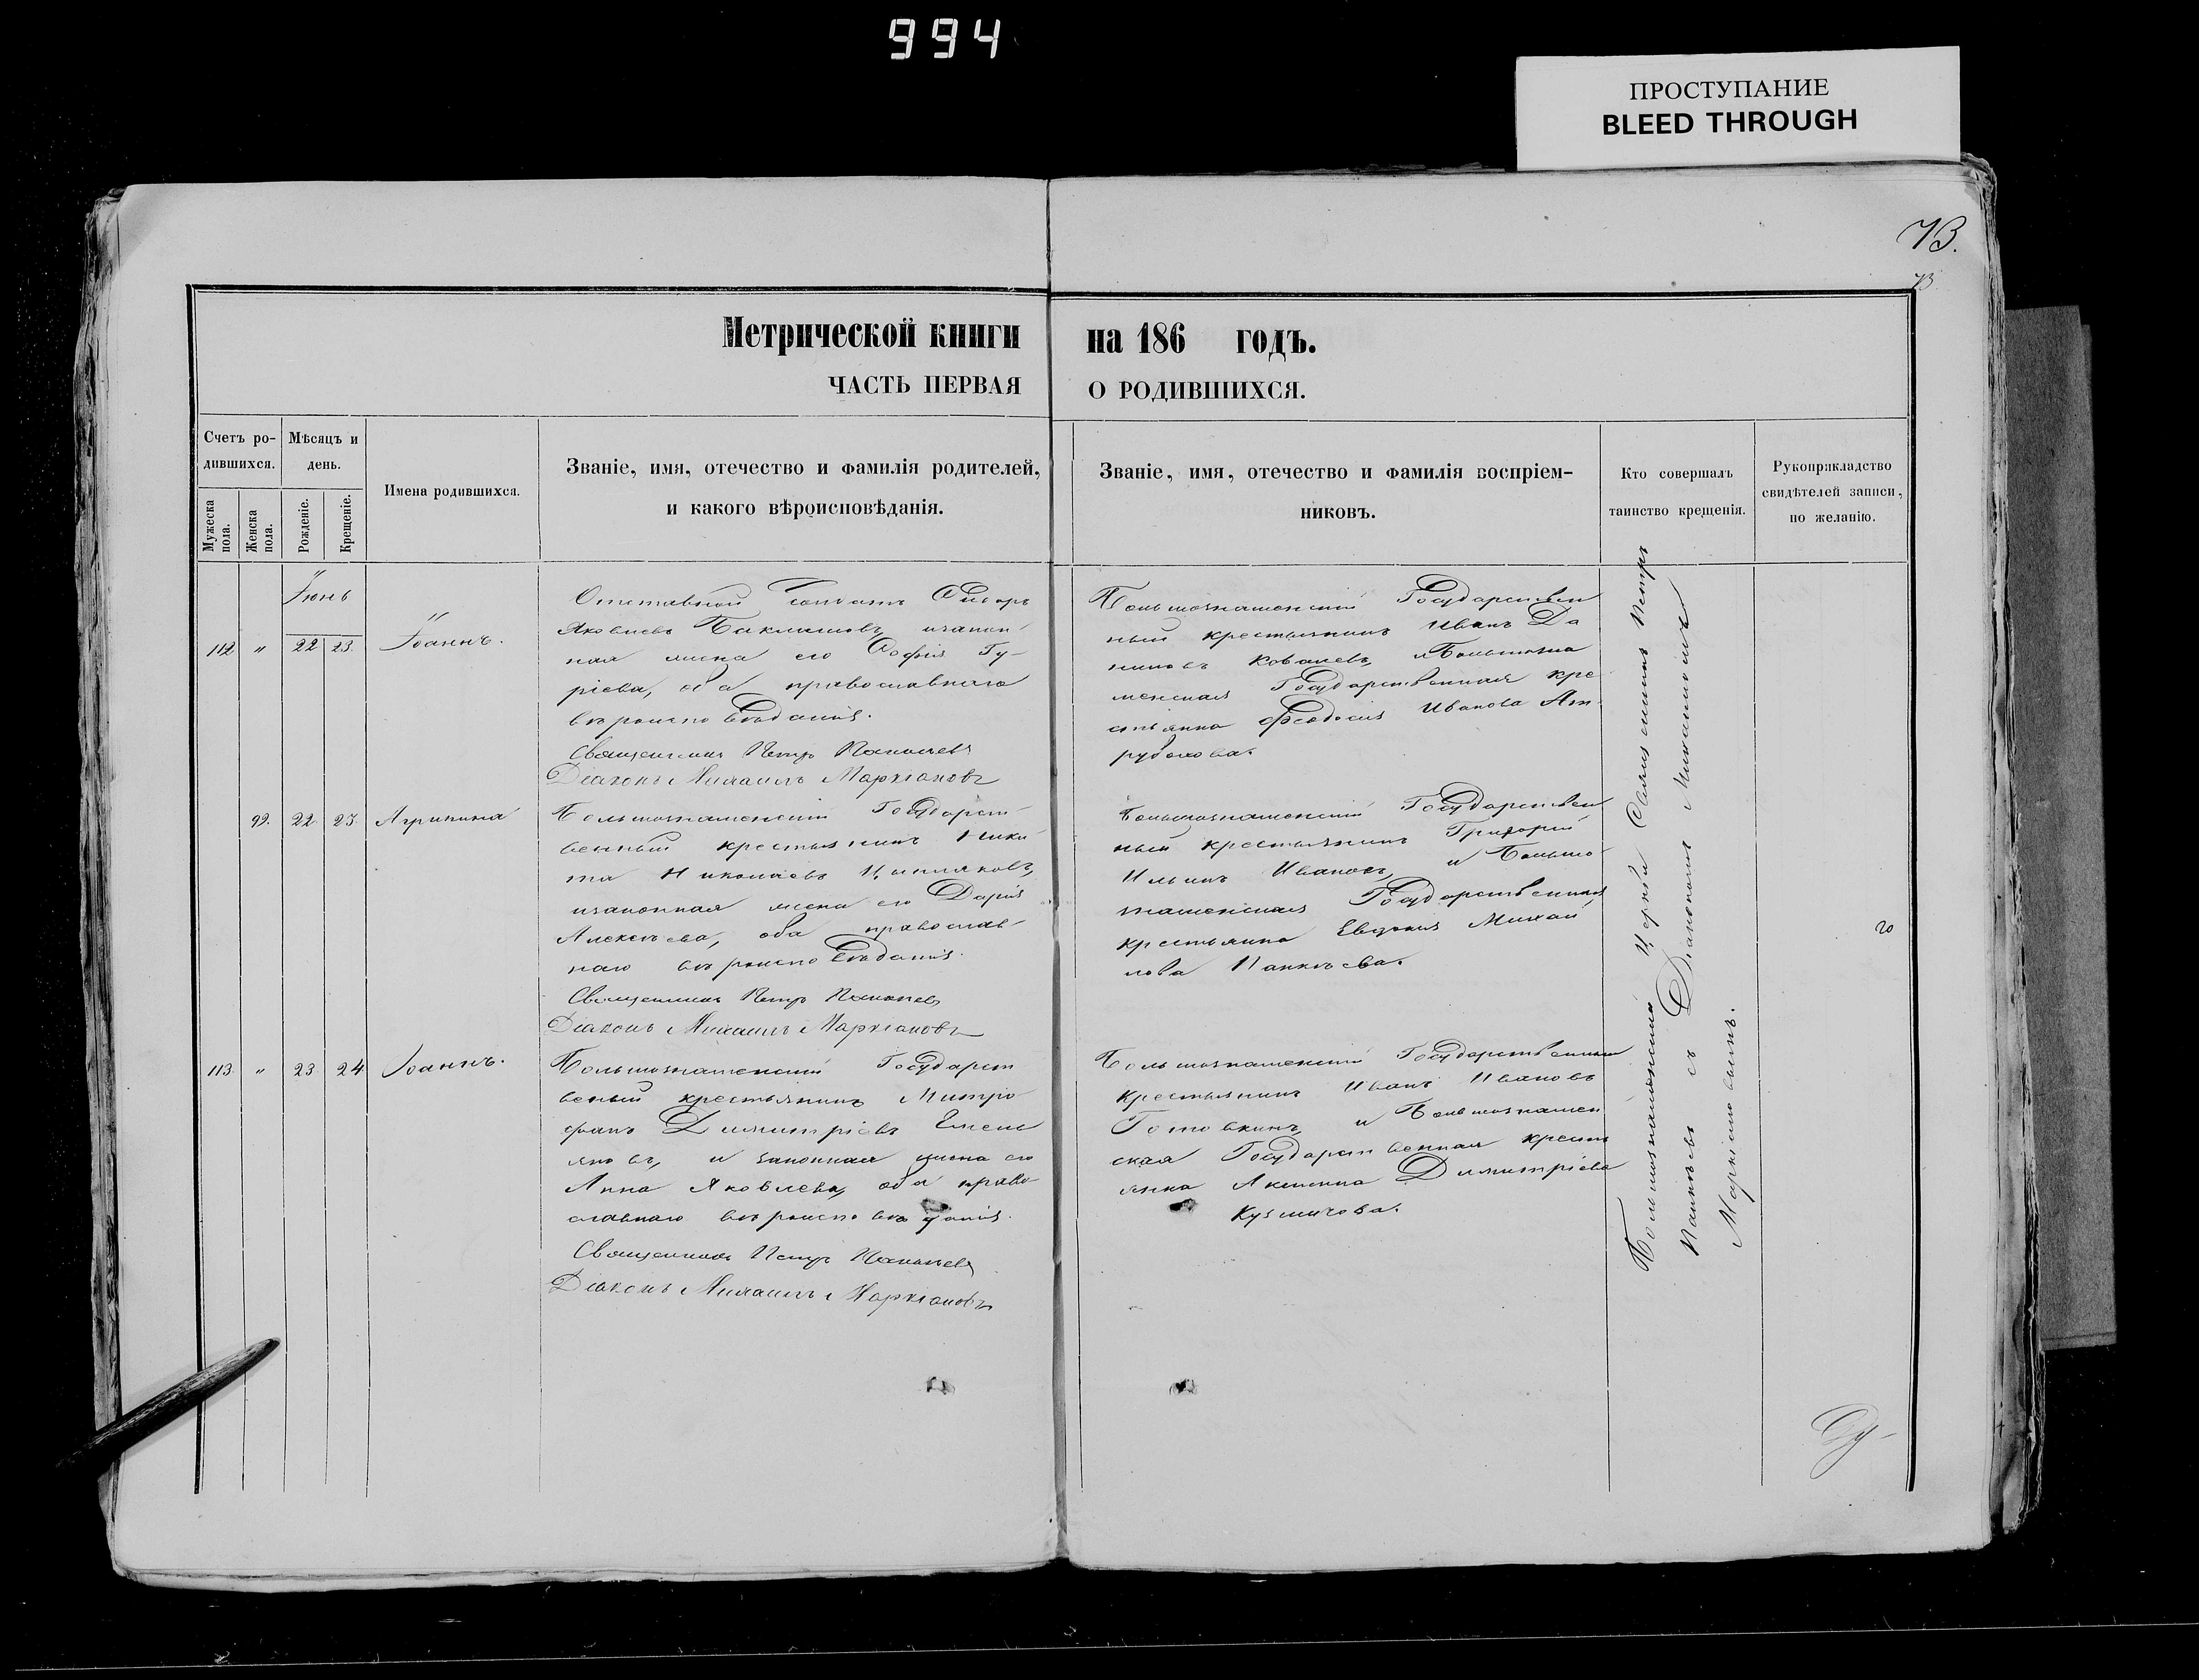 994
ПРОСТУПАНИЕ
BLEED THROUGH
73.
73.
Метрической книги на 186 годъ.
ЧАСТЬ ПЕРВАЯ О РОДИВШИХСЯ.
Счетъ ро-
дившихся.
Мѣсяцъ и
день.
Мужеска
пола.
Женска
пола.
Рожденіе.
Крещеніе.
Имена родившихся.
Званіе, имя, отечество и фамилія родителей,
и какого вѣроисповѣданія.
Званіе, имя, отечество и фамилія воспріем-
никовъ.
Кто совершалъ
таинство крещенія.
Рукоприкладство
свидѣтелей записи,
по желанію.
Іюнь
112 " 22 23. Іоаннъ.
Отставной Солдатъ Ѳедоръ
Яковлевъ изакон-
ная жена его Софія Гу-
ріева, оба православнаго
вѣроисповѣданія.
Священникъ Петръ
Діаконъ Михаилъ Маркіановъ
Большознаменскій Государствен
ный крестьянинъ Иванъ Да
ниловъ Ковалевъ, иБольшозна
менская Государственная кре
стьянка Феодосия Иванова
99. 22. 23. Агрипина
Большознаменскій Государст
венный крестьянинъ Ники
та Николаевъ Цыпляковъ,
изаконная жена его Дарія
Алексѣева, оба православ-
наго вѣроисповѣданія.
Священникъ Петръ
Діаконъ Михаилъ Маркіановъ
Большознаменскій Государствен
ный крестьянинъ Григорій
Ильинъ Ивановъ, и Большо
знаменская Государственная
крестьянка Евдокия Михай
лова Панкѣева.
113. " 23 24 Іоаннъ.
Большознаменскій Государст
веный крестьянинъ Митро
фанъ Димитріевъ Емель
яновъ, и законная жена его
Анна Яковлева, оба право
славнаго вѣроисповѣданія.
Священникъ Петръ
Діаконъ Михаилъ Маркіановъ
Большознаменскій Государственный
крестьянинъ Иванъ Ивановъ
Готовкинъ, и Большознамен
ская Государственная кресть
янка Акилина Димитріева
Кузмичова.
Большознаменской Церкви Священникъ Петръ
съ Діакономъ Михаиломъ
Маркіановымъ.